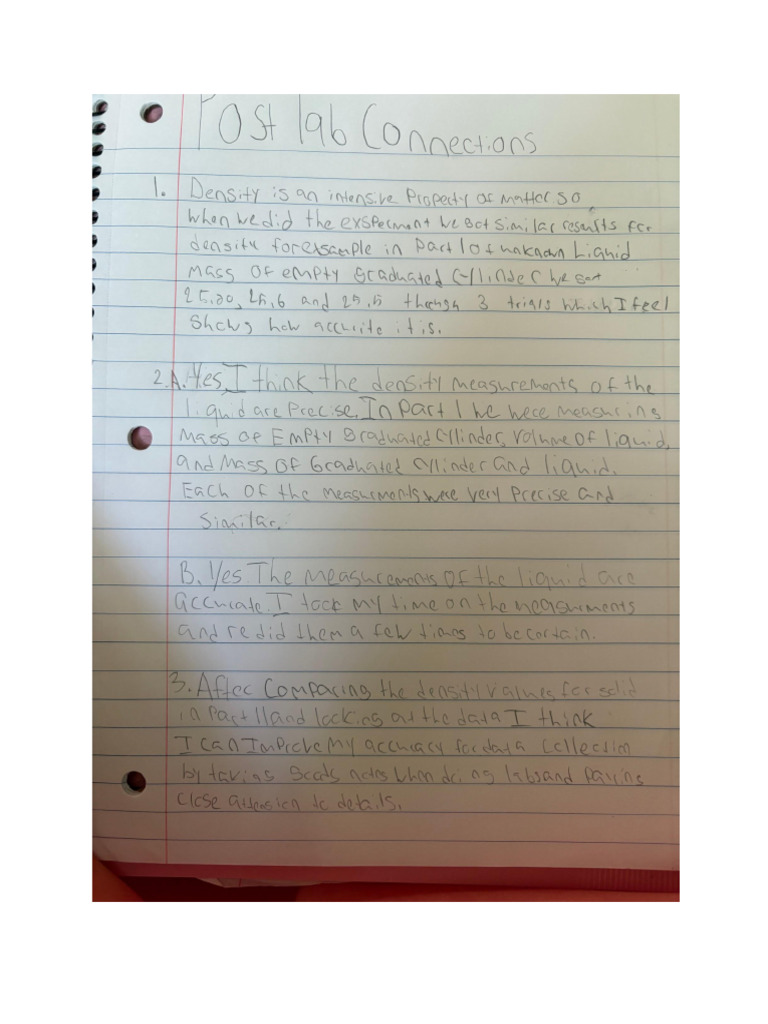 Post lab Connections
1. Density is an intensive Property of matter. so
when we did the exsperment we got similar results for
density for exsample in part 1 of unknown Liquid
mass of empty graduated cylinder we got
25.20, 25.6 and 25.5 through 3 trials which I feel
Shows how accurite it is.
2.A. Yes, I think the density measurements of the
liquid are Precise. In Part 1 we were measuring
Mass of Empty graduated cylinder, Volume of liquid,
and Mass of Graduated cylinder and liquid.
Each of the measurments were very Precise and
Similar.
B. Yes The measurements of the liquid are
accurate. I took my time on the measurments
and redid them a few times to be certain.
3. After Comparing the density values for solid
in Part II and looking at the data I think
I can Improve my accuracy for data collection
by taking notes when doing labs and paying
close attension to details.